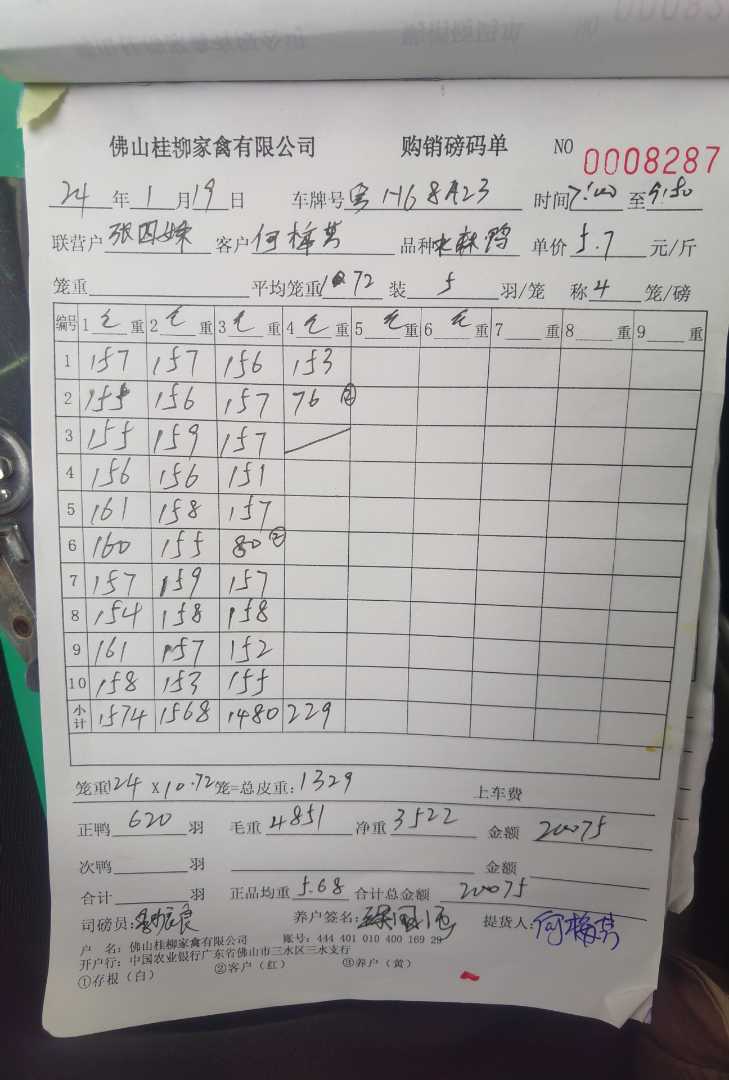 佛山桂柳家禽有限公司 购销磅码单 NO 0008287
24年1月19日 车牌号 粤H68A23 时间7:00至9:50
联营户 张四妹 客户 何梅芳 品种 鸭 单价 5.7 元/斤
笼重 平均笼重10.72 装 5 羽/笼 称 4 笼/磅
编号 1 毛 重 2 毛 重 3 毛 重 4 毛 重 5 毛 重 6 毛 重 7 重 8 重 9 重
1 157 157 156 153
2 155 156 157 76②
3 155 159 157
4 156 156 151
5 161 158 157
6 160 155 80②
7 157 159 157
8 154 158 158
9 161 157 152
10 158 153 155
小计 1574 1568 1480 229
笼重124×10.72笼=总皮重:1329 上车费
正鸭 620 羽 毛重 4851 净重 3522 金额 20075
次鸭 羽 金额
合计 羽 正品均重 5.68 合计总金额 20075
司磅员: 养户签名: 提货人:何梅芳
户 名:佛山桂柳家禽有限公司 账号:444 401 010 400 169 29
开户行:中国农业银行广东省佛山市三水区三水支行
①存根(白) ②客户(红) ③养户(黄)